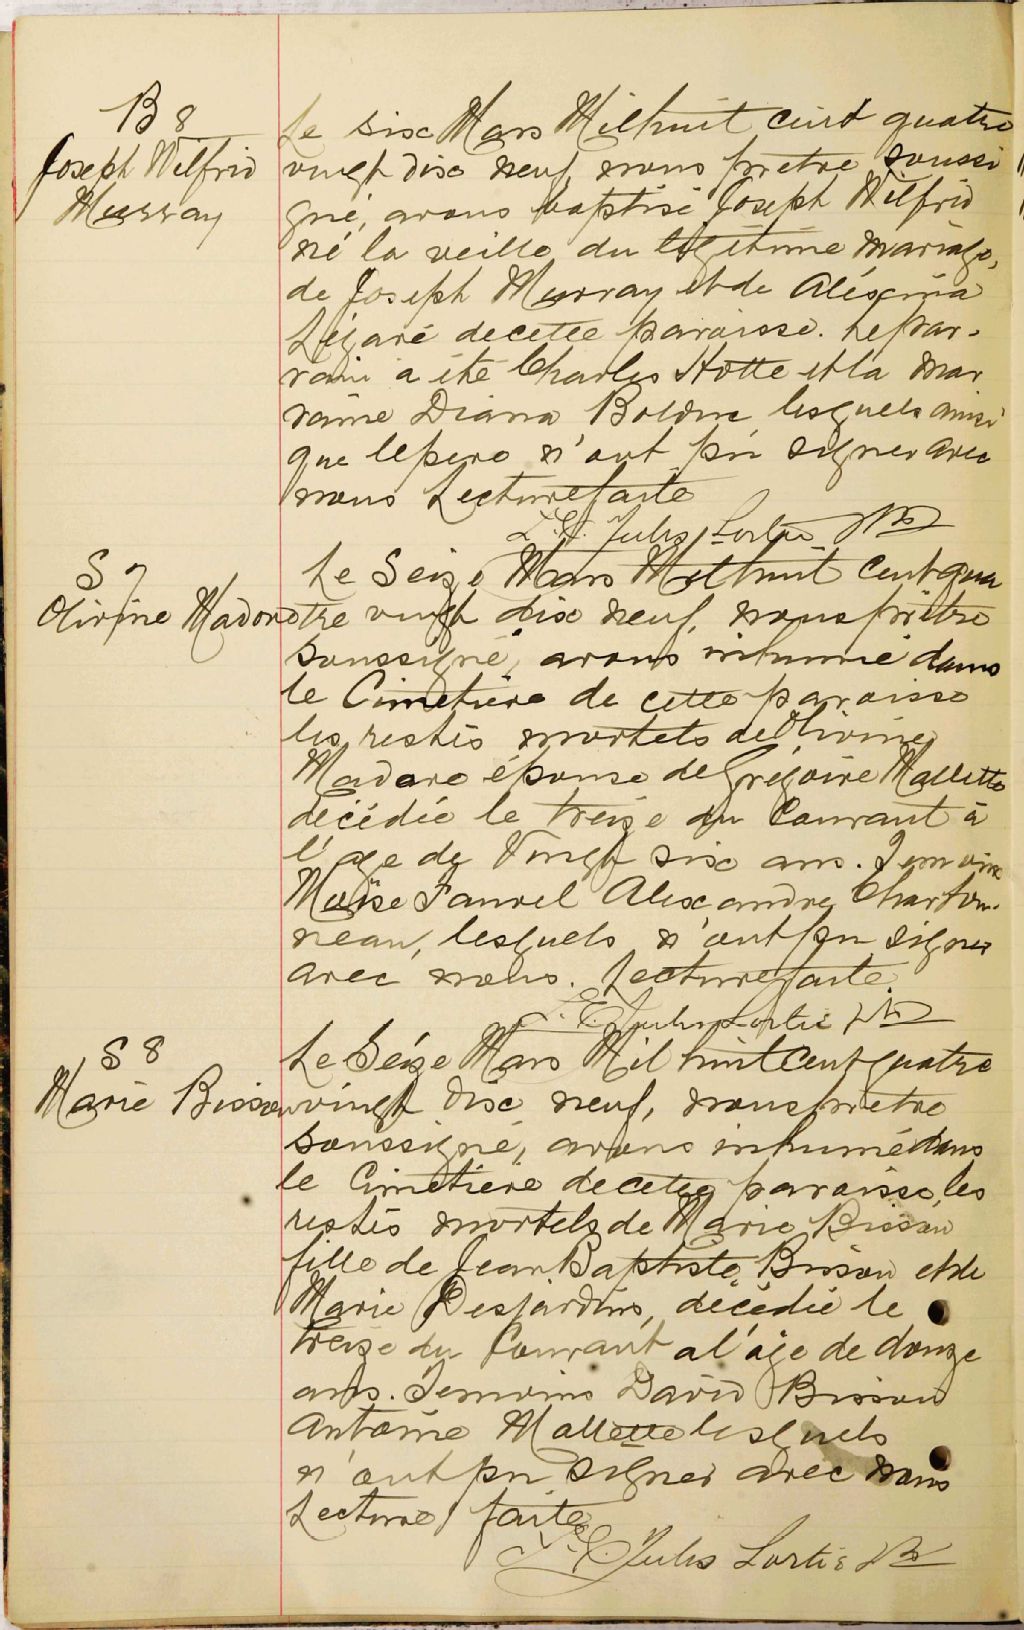 B 8
Joseph Wilfrid
Murray
Le six Mars Mil huit cent quatre
vingt dix neuf, nous prêtre soussi
gné, avons baptisé Joseph Wilfrid
né la veille du légitime mariage,
de Joseph Murray et de Aléxina
Légaré de cette paroisse. Le par-
rain a été Charles Hotte et la mar
raine Diana Bolduc lesquels ainsi
que le pere n'ont pu signer avec
nous Lecture faite
J.E. Jules Lortie Ptr
S 7
Olivine Madore
Le Seize Mars Mil huit cent qua
tre vingt dix neuf, nous prêtre
soussigné, avons inhumé dans
le Cimetière de cette paroisse
les restes mortels de Olivine
Madore épouse de Grégoire Mallette
décédée le treize du Courant à
l'age de Vingt six ans. Temoins
Moïse Alexandre Charbon-
neau, lesquels n'ont pu signer
avec nous. Lecture faite.
J.E. Jules Lortie Ptr
S 8
Marie Bisson
Le Seize Mars Mil huit cent quatre
vingt dix neuf, nous prêtre
soussigné, avons inhumé dans
le Cimetière de cette paroisse, les
restes mortels de Marie Bisson
fille de Jean Baptiste Bisson et de
Marie Desjardins, décédée le
treize du Courant a l'age de douze
ans. Temoins David Bisson
Antoine Mallette lesquels
n'ont pu signer avec nous
Lecture faite
J.E. Jules Lortie Ptr